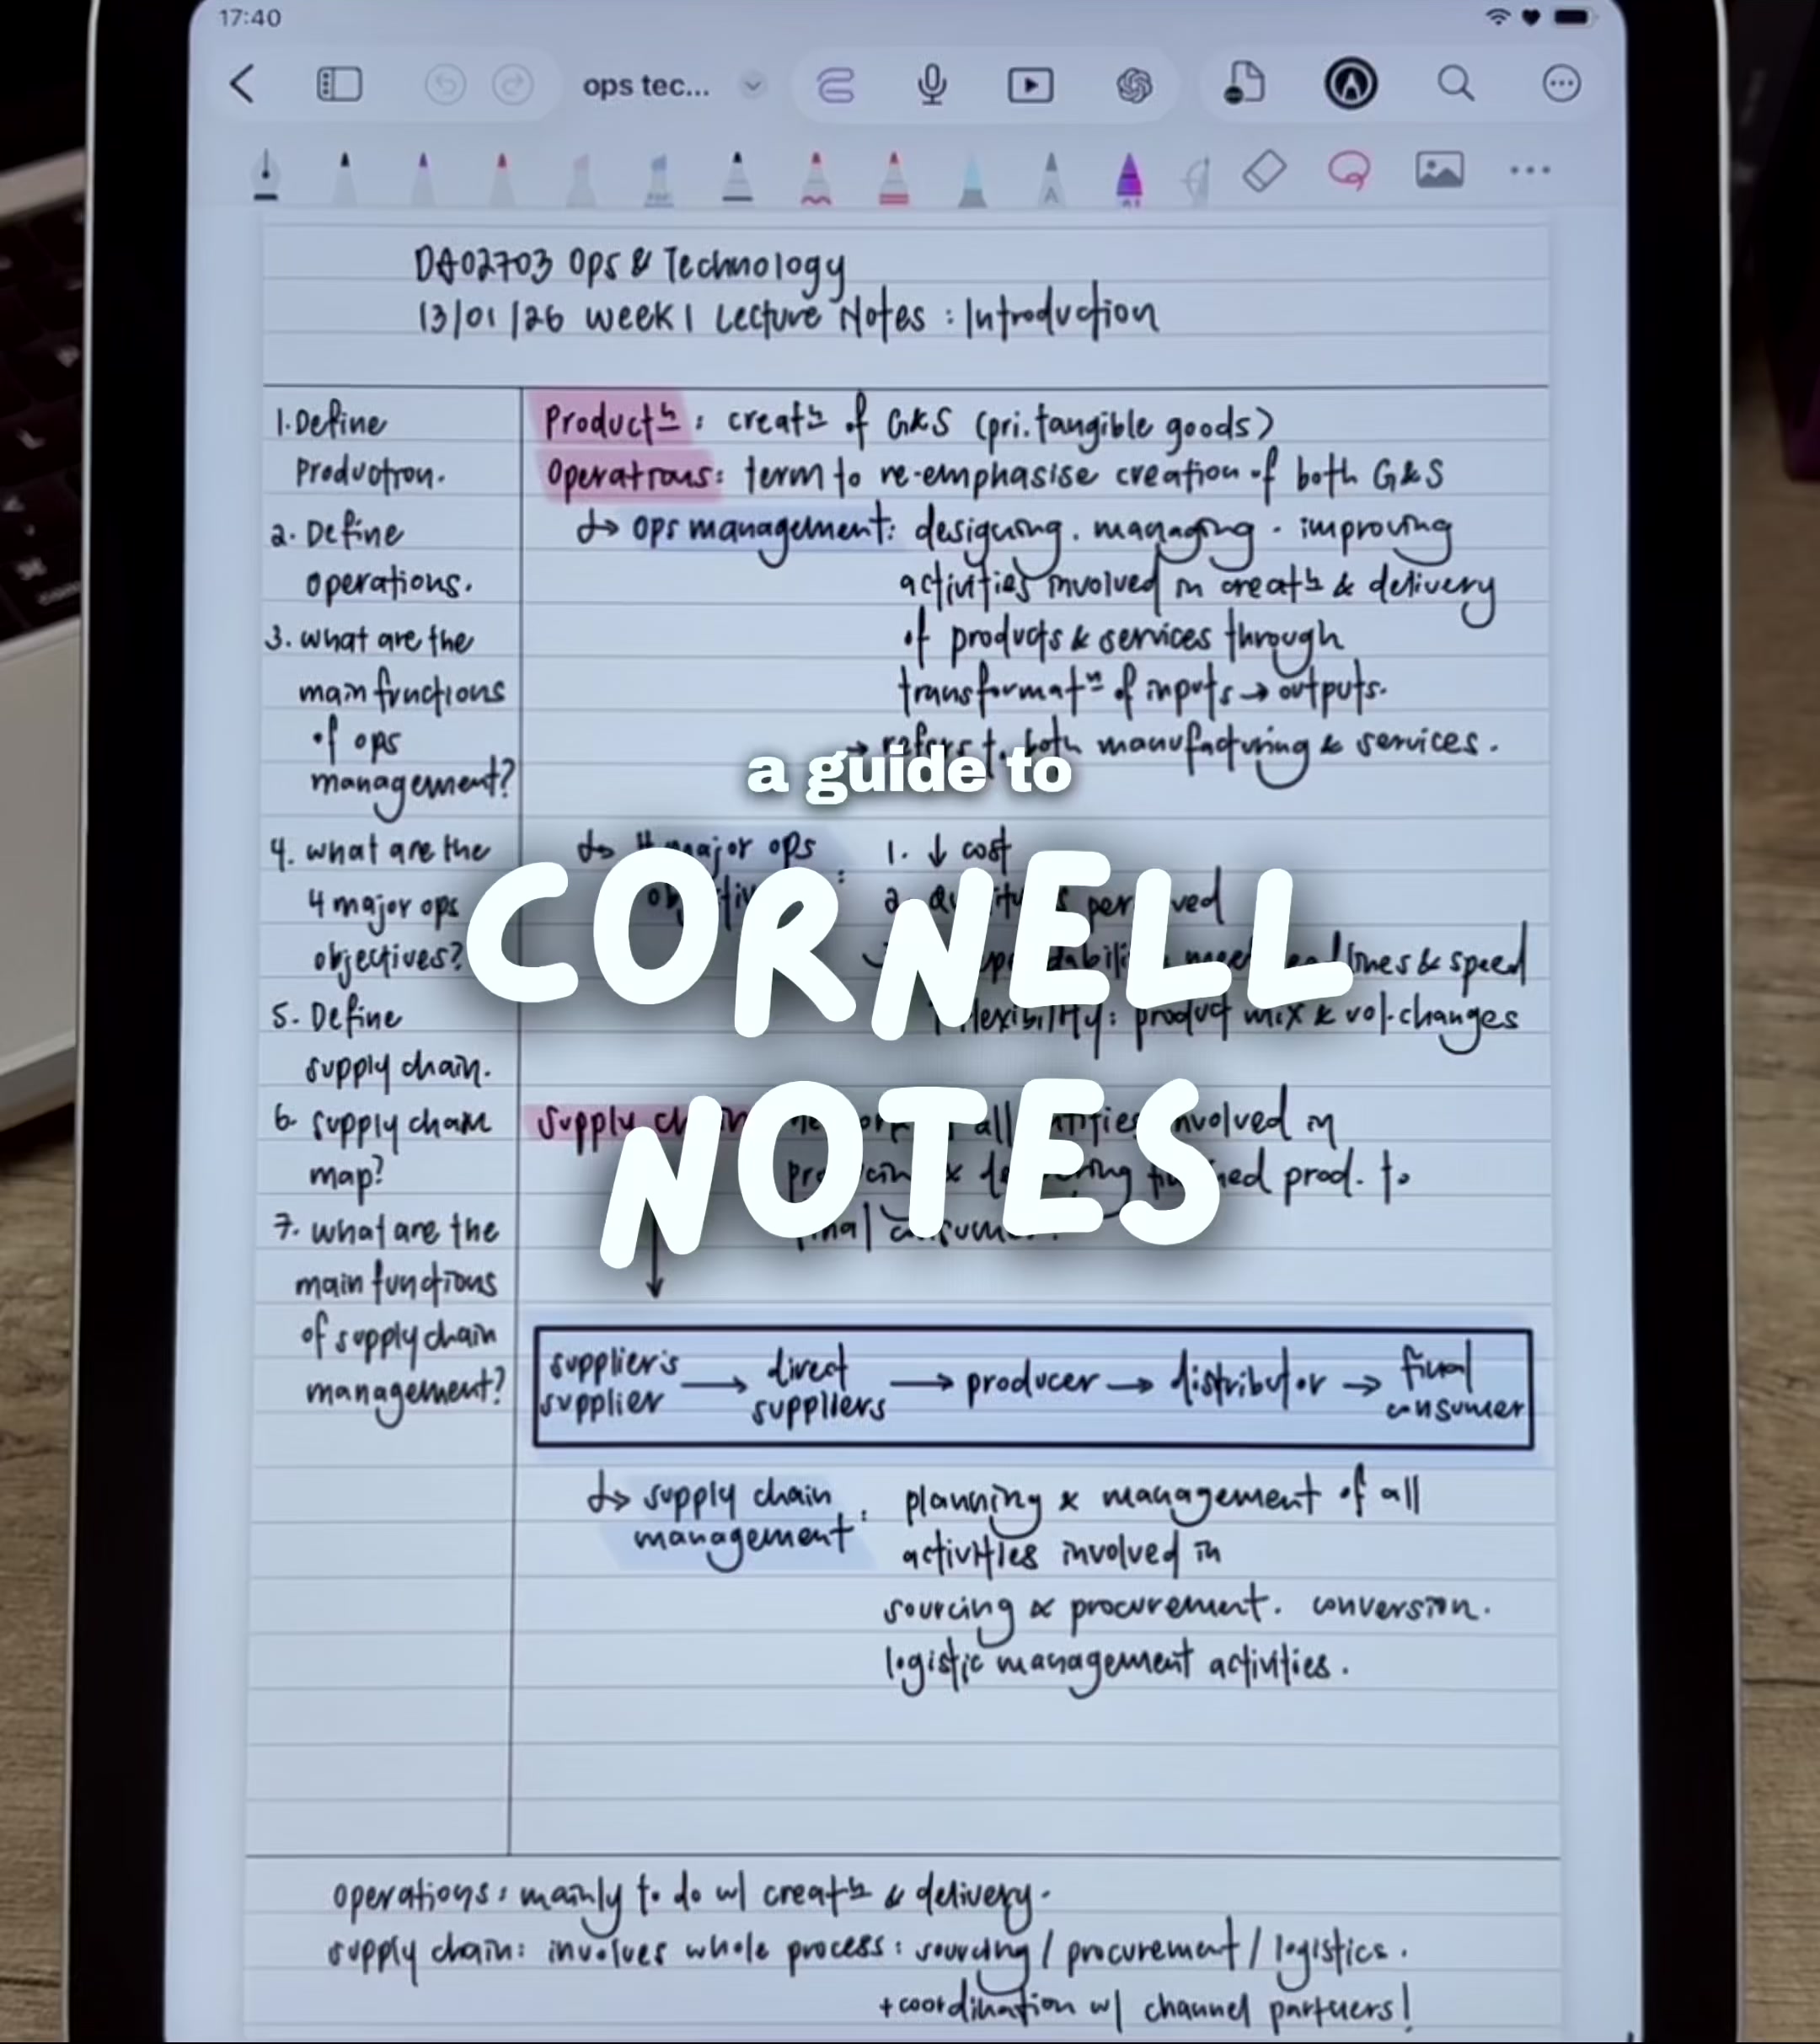 17:40
ops tec...
DAO2703 Ops & Technology
13/01/26 Week 1 Lecture Notes : Introduction
1. Define
Production.
2. Define
operations.
3. what are the
main functions
of ops
management?
4. what are the
4 major ops
objectives?
5. Define
supply chain.
6. supply chain
map?
7. what are the
main functions
of supply chain
management?
Productⁿ : creatⁿ of G&S (pri. tangible goods)
Operations: term to re-emphasise creation of both G&S
↳ ops management: designing, managing, improving
activities involved in creatⁿ & delivery
of products & services through
transformatⁿ of inputs → outputs.
→ refers to both manufacturing & services.
a guide to
CORNELL
NOTES
↳ major ops :
1. ↓ cost
2.
& speed
flexibility: product mix & vol. changes
supply chain all involved in
prod. to
↓
supplier's supplier → direct suppliers → producer → distributor → final consumer
↳ supply chain management :
planning & management of all
activities involved in
sourcing & procurement, conversion,
logistic management activities.
operations: mainly to do w/ creatⁿ & delivery.
supply chain: involves whole process: sourcing / procurement / logistics.
+ coordination w/ channel partners!